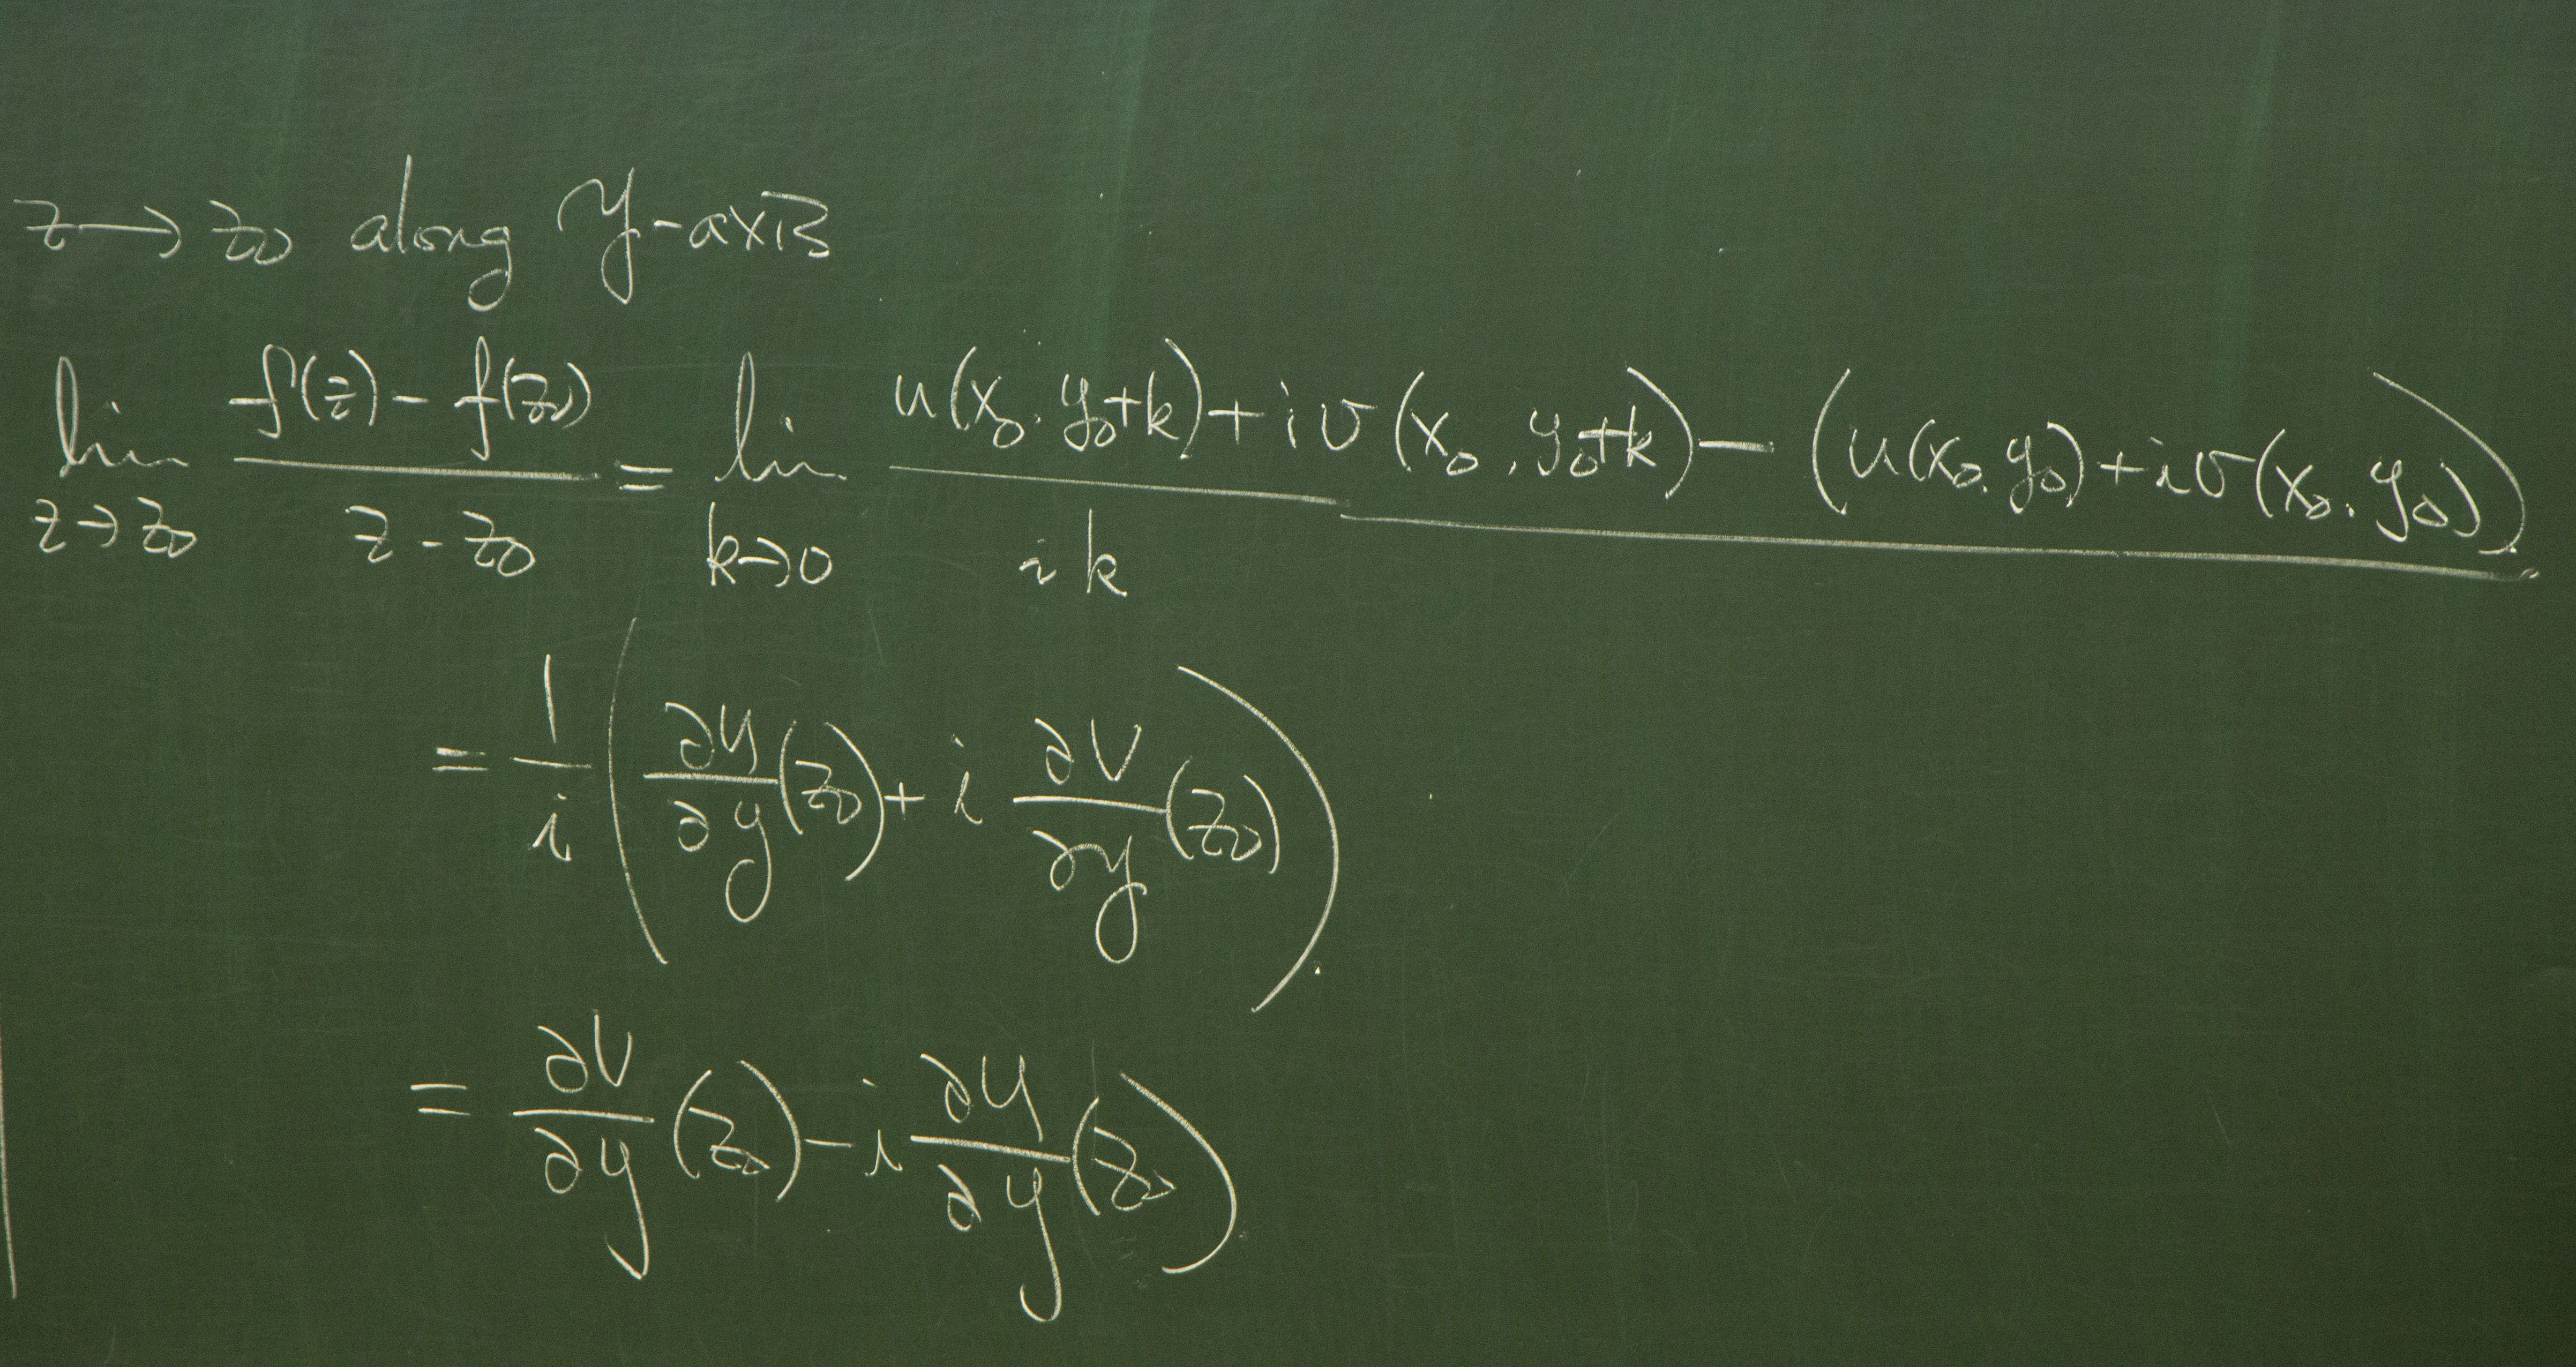 z → z₀ along y-axis
lim_{z→z₀} (f(z) - f(z₀))/(z - z₀) = lim_{k→0} (u(x₀, y₀+k) + iv(x₀, y₀+k) - (u(x₀, y₀) + iv(x₀, y₀)))/(ik)
= 1/i (∂u/∂y (z₀) + i ∂v/∂y (z₀))
= ∂v/∂y (z₀) - i ∂u/∂y (z₀)